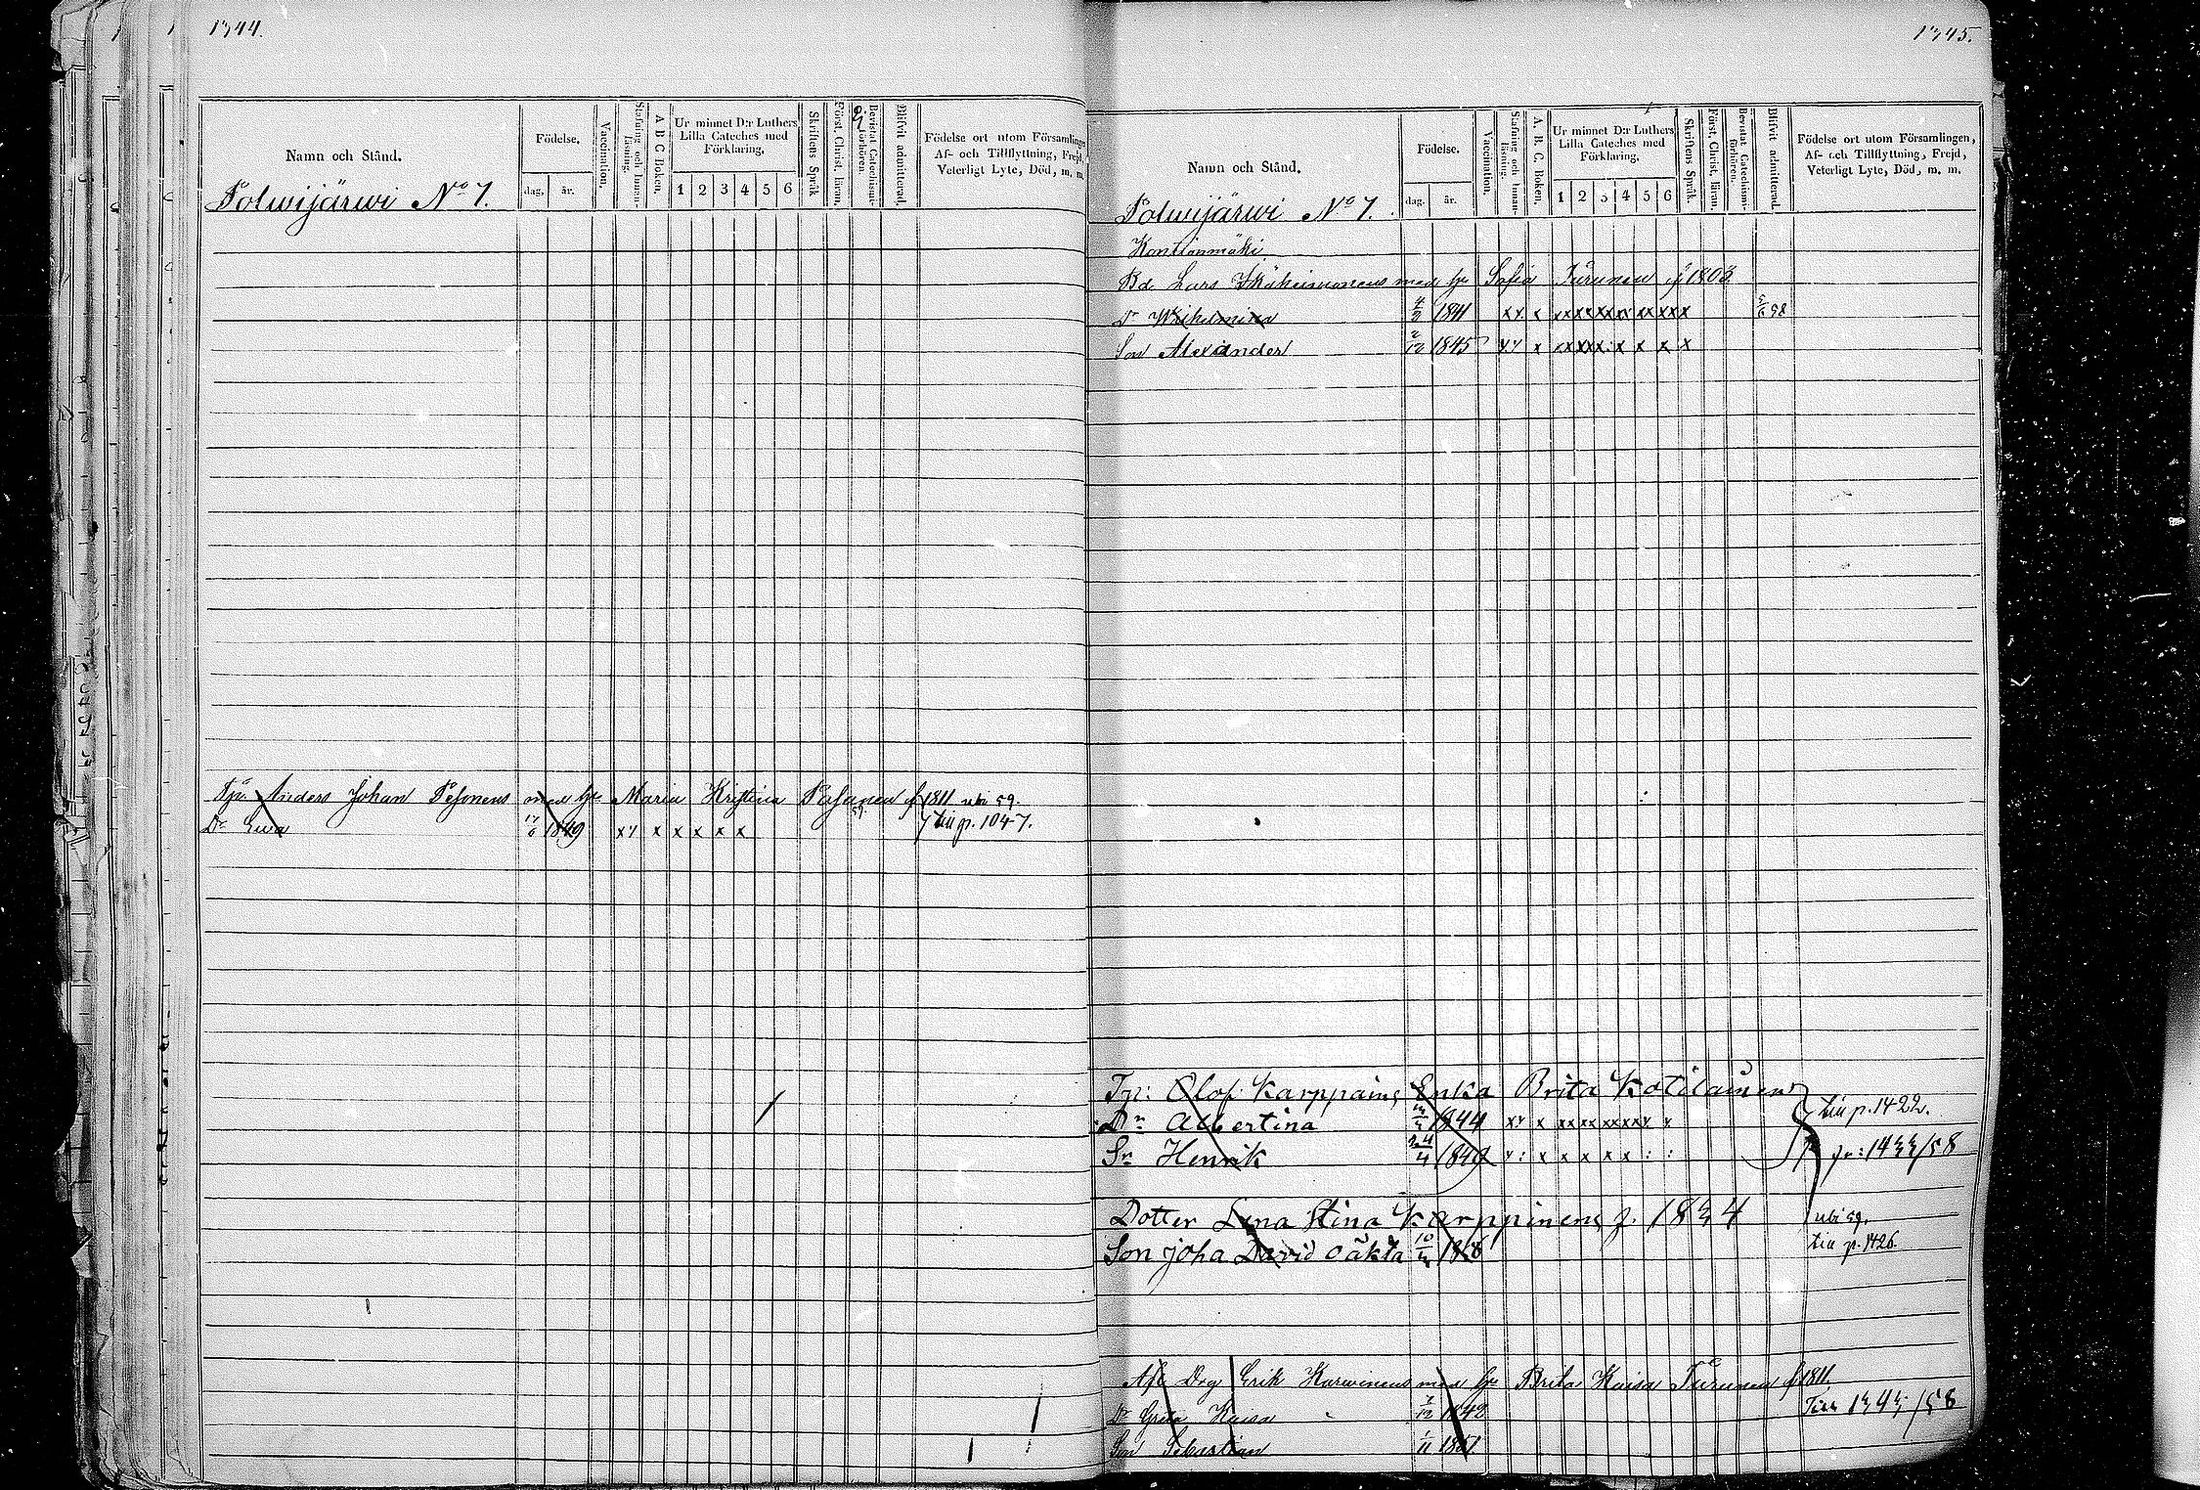 1344.
Namn och Stånd.
Födelse.
dag, år.
Vaccination.
Stafning och Innan-läsning.
A B C Boken.
Ur minnet D:r Luthers Lilla Cateches med Förklaring.
1 2 3 4 5 6
Skriftens Språk
Först. Christ. läran.
Bevistat Catechismi-förhören.
Blifvit admitterad.
Födelse ort utom Församlingen,
Af- och Tillflyttning, Frejd,
Veterligt Lyte, Död, m. m.
Polwijärwi No 7.
Anders Johan Pesonens med hu Maria Kristina f 1811 ubi 59.
Dr Ewa 1849 xy x x x x x tiu p. 1047.
1345.
Namn och Stånd.
Födelse.
dag. år.
Vaccination.
Stafning och Innan-läsning.
A. B. C. Boken.
Ur minnet D:r Luthers
Lilla Cateches med
Förklaring.
1 2 3 4 5 6
Skriftens Språk.
Först. Christ. läran.
Bevistat Catechismi-förhören.
Blifvit admitterad.
Födelse ort utom Församlingen,
Af- och Tillflyttning, Frejd,
Veterligt Lyte, Död, m. m.
Polwijärwi No 7.
Kontianmäki.
Bd Lars med hu Sofia Turunen f 1803
Dr Wilhelmina 1841
Son Alexander 2/12 1845
Olof Karppains Enka Brita Kotilainen
Dr Albertina 1844 tiu p. 1422.
Sn Henrik 24/4 1849
Dotter Lena Stina Karppinens f. ubi 59.
Son joha David oäkta tiu p. 1426.
Erik Karwinens med hu Brita Kaisa Turunen f 1811
Dr Greta Kaisa 1842
Son Sebastian 1/11 1851